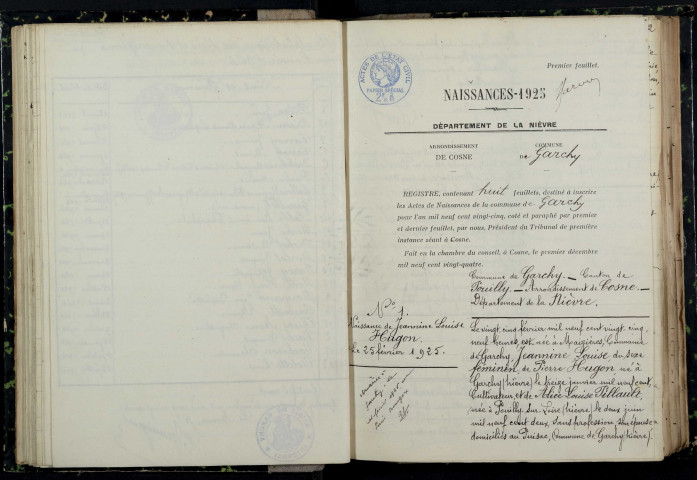 Premier feuillet.
ACTES DE L'ETAT CIVIL
PAPIER SPECIAL
NAISSANCES-1925
DÉPARTEMENT DE LA NIÈVRE
ARRONDISSEMENT
DE COSNE
COMMUNE
DE Garchy
REGISTRE, contenant huit feuillets, destiné à inscrire
les Actes de Naissances de la commune de Garchy
pour l'an mil neuf cent vingt-cinq, coté et paraphé par premier
et dernier feuillet, par nous, Président du Tribunal de première
instance séant à Cosne.
Fait en la chambre du conseil, à Cosne, le premier décembre
mil neuf cent vingt-quatre.
Commune de Garchy. _ Canton de
Pouilly. _ Arrondissement de Cosne. _
Département de la Nièvre.
N° 1.
Naissance de Jeannine Louise
Hugon.
Le 25 février 1925.
Le vingt cinq février mil neuf cent vingt cinq,
neuf heures, est née à Mézières, Commune
de Garchy, Jeannine Louise du sexe
féminin, de Pierre Hugon né à
Garchy (Nièvre) le janvier mil neuf cent,
Cultivateur, et de Alice Louise Pillault,
née à Pouilly-sur-Loire (Nièvre) le deux juin
mil neuf cent deux, sans profession, son épouse
domiciliés au Puisac, Commune de Garchy (Nièvre).